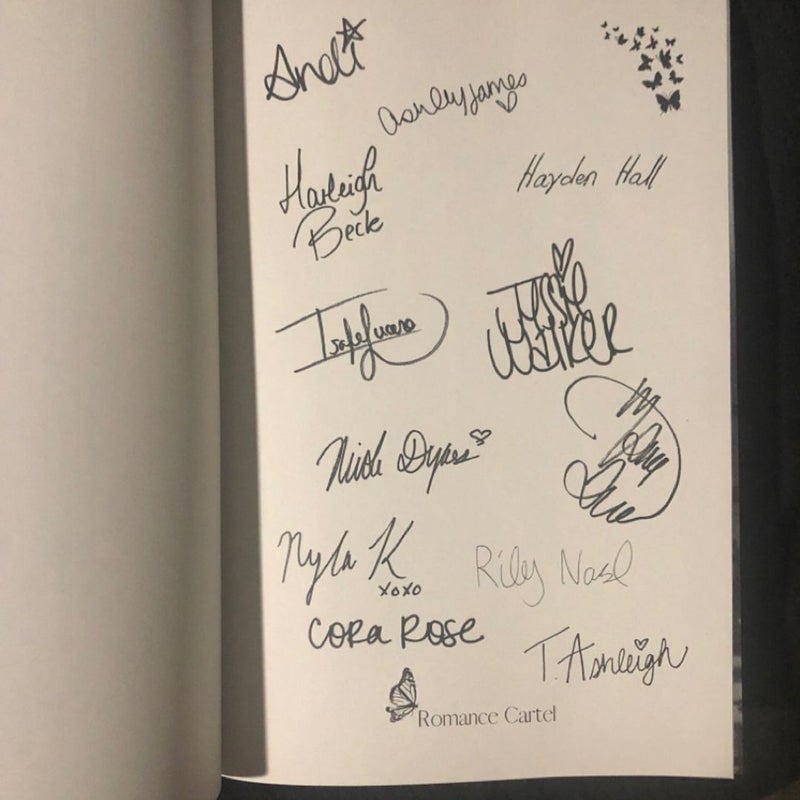 Andi
ashleyjames
Harleigh
Beck
Hayden Hall
Isabel Lucero
Tessie
Walker
Nicole Dykes
Nyla K
xoxo
Rily Nasl
CORA ROSE
T. Ashleigh
Romance Cartel